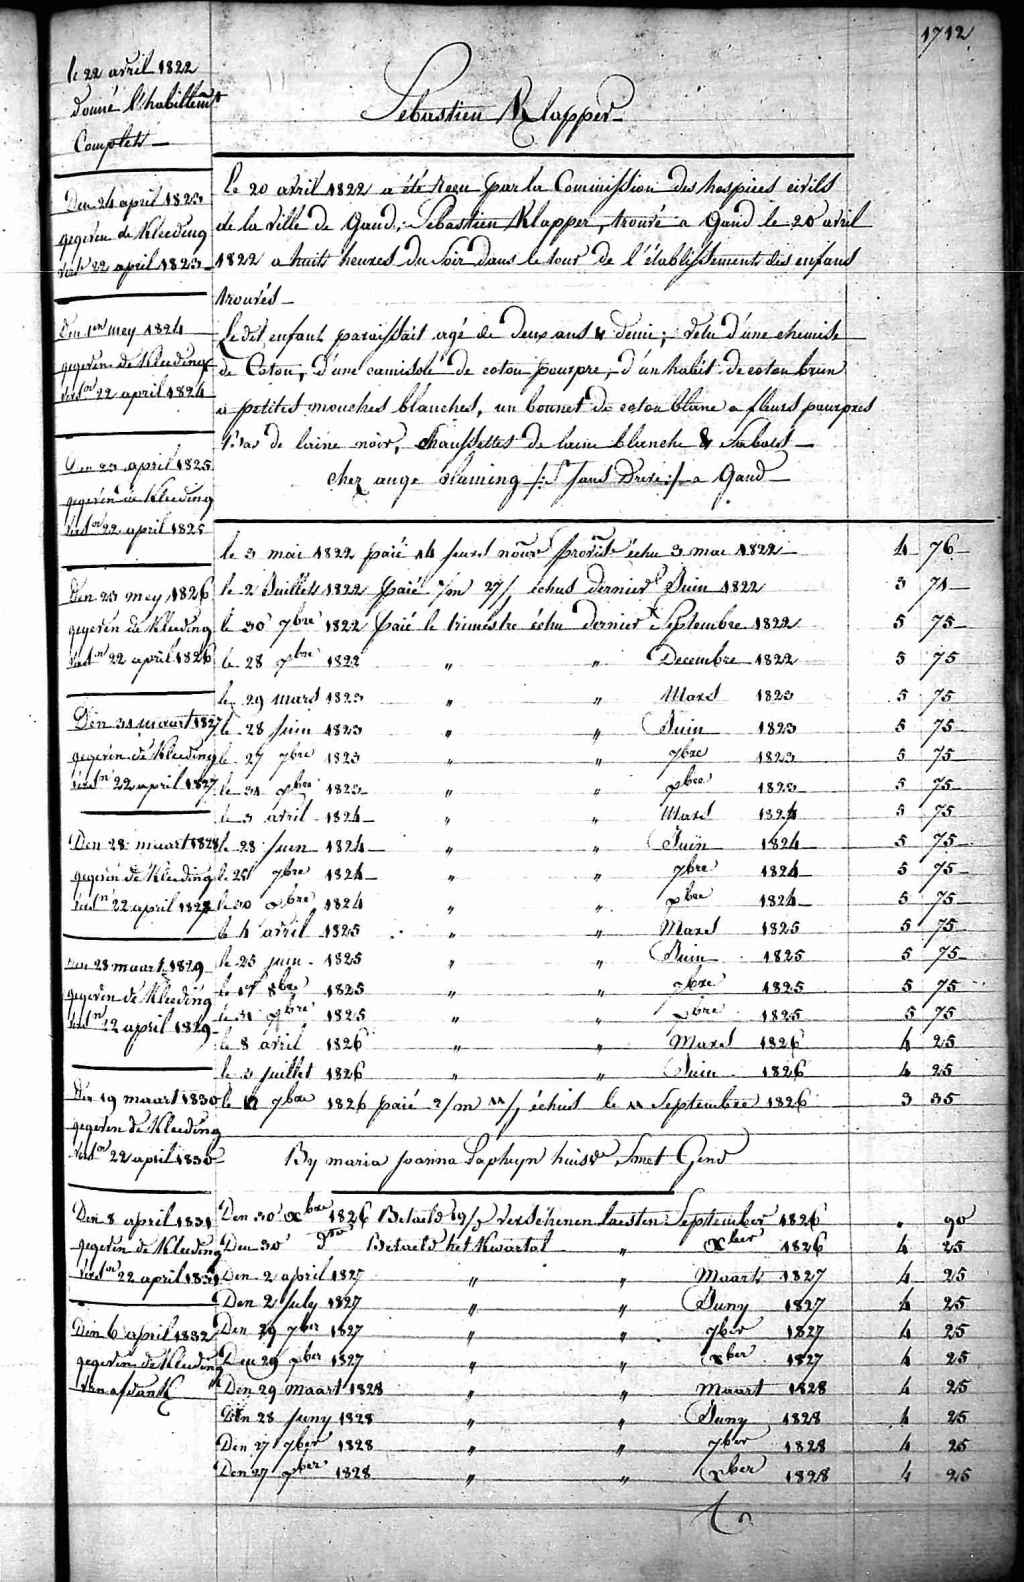 1712
le 22 avril 1822
donné l'habillemt
Complet
Den 24 april 1823
gegeven de Kleeding
versn 22 april 1823
Den 1en mey 1824
gegeven de Kleeding
versn 22 april 1824
Den 23 april 1825
gegeven de Kleeding
versn 22 april 1825
Den 23 mey 1826
gegeven de Kleeding
versn 22 april 1826
Den 31 maart 1827
gegeven de Kleeding
versn 22 april 1827
Den 28 maart 1828
gegeven de Kleeding
versn 22 april 1828
Den 28 maart 1829
gegeven de Kleeding
versn 22 april 1829
Den 19 maart 1830
gegeven de Kleeding
versn 22 april 1830
Den 8 april 1831
gegeven de Kleeding
versn 22 april 1831
Den 6 april 1832
gegeven de Kleeding
van afdank
Sebastien Klapper
Le 20 avril 1822 a été reçu par la Commission des hospices civils
de la ville de Gand, Sebastien Klapper, trouvé a Gand le 20 avril
1822 a huit heures du soir dans le tour de l'établissement des enfans
trouvés
Ledit enfant paraissait agé de deux ans & demi; vetu d'une chemise
de Coton, d'une camisole de coton pourpre, d'un habit de coton brun
a petites mouches blanches, un bonnet de coton blanc a fleurs pourpres
bas de laine noir, chaussettes de laine blanche & sabots
chez ange Vlaming /: St Jans Dreve :/ a Gand
le 3 mai 1822 paié 14 jours nourre provisre échu 3 mai 1822 4 76
le 2 Juillet 1822 paié 1/m 27/j échus dernier Juin 1822 3 71
le 30 7bre 1822 paié le trimestre échu dernier Septembre 1822 5 75
le 28 xbre 1822 " " Decembre 1822 5 75
le 29 mars 1823 " " Mars 1823 5 75
le 28 juin 1823 " " Juin 1823 5 75
le 27 7bre 1823 " " 7bre 1823 5 75
le 31 xbre 1823 " " xbre 1823 5 75
le 3 avril 1824 " " Mars 1824 5 75
le 28 juin 1824 " " Juin 1824 5 75
le 25 7bre 1824 " " 7bre 1824 5 75
le 30 xbre 1824 " " xbre 1824 5 75
le 4 avril 1825 " " Mars 1825 5 75
le 25 juin 1825 " " Juin 1825 5 75
le 17 8bre 1825 " " 7bre 1825 5 75
le 31 xbre 1825 " " xbre 1825 5 75
le 8 avril 1826 " " Mars 1826 4 25
le 3 juillet 1826 " " Juin 1826 4 25
le 12 7bre 1826 paié 2/m 11/j échus le 11 Septembre 1826 3 35
By maria joanna Laphuyn huisv Smet Gend
Den 30 xbre 1826 Betaeld 19/j verschenen laesten September 1826 " 90
Den 30 do Betaeld het Kwartal " xber 1826 4 25
Den 2 april 1827 " " Maart 1827 4 25
Den 2 july 1827 " " Juny 1827 4 25
Den 29 7ber 1827 " " 7ber 1827 4 25
Den 29 xber 1827 " " xber 1827 4 25
Den 29 maart 1828 " " Maart 1828 4 25
Den 28 juny 1828 " " Juny 1828 4 25
Den 27 7ber 1828 " " 7ber 1828 4 25
Den 27 xber 1828 " " xber 1828 4 25